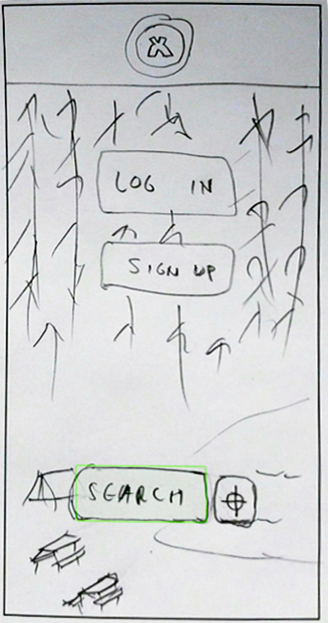 X
LOG IN
SIGN UP
SEARCH